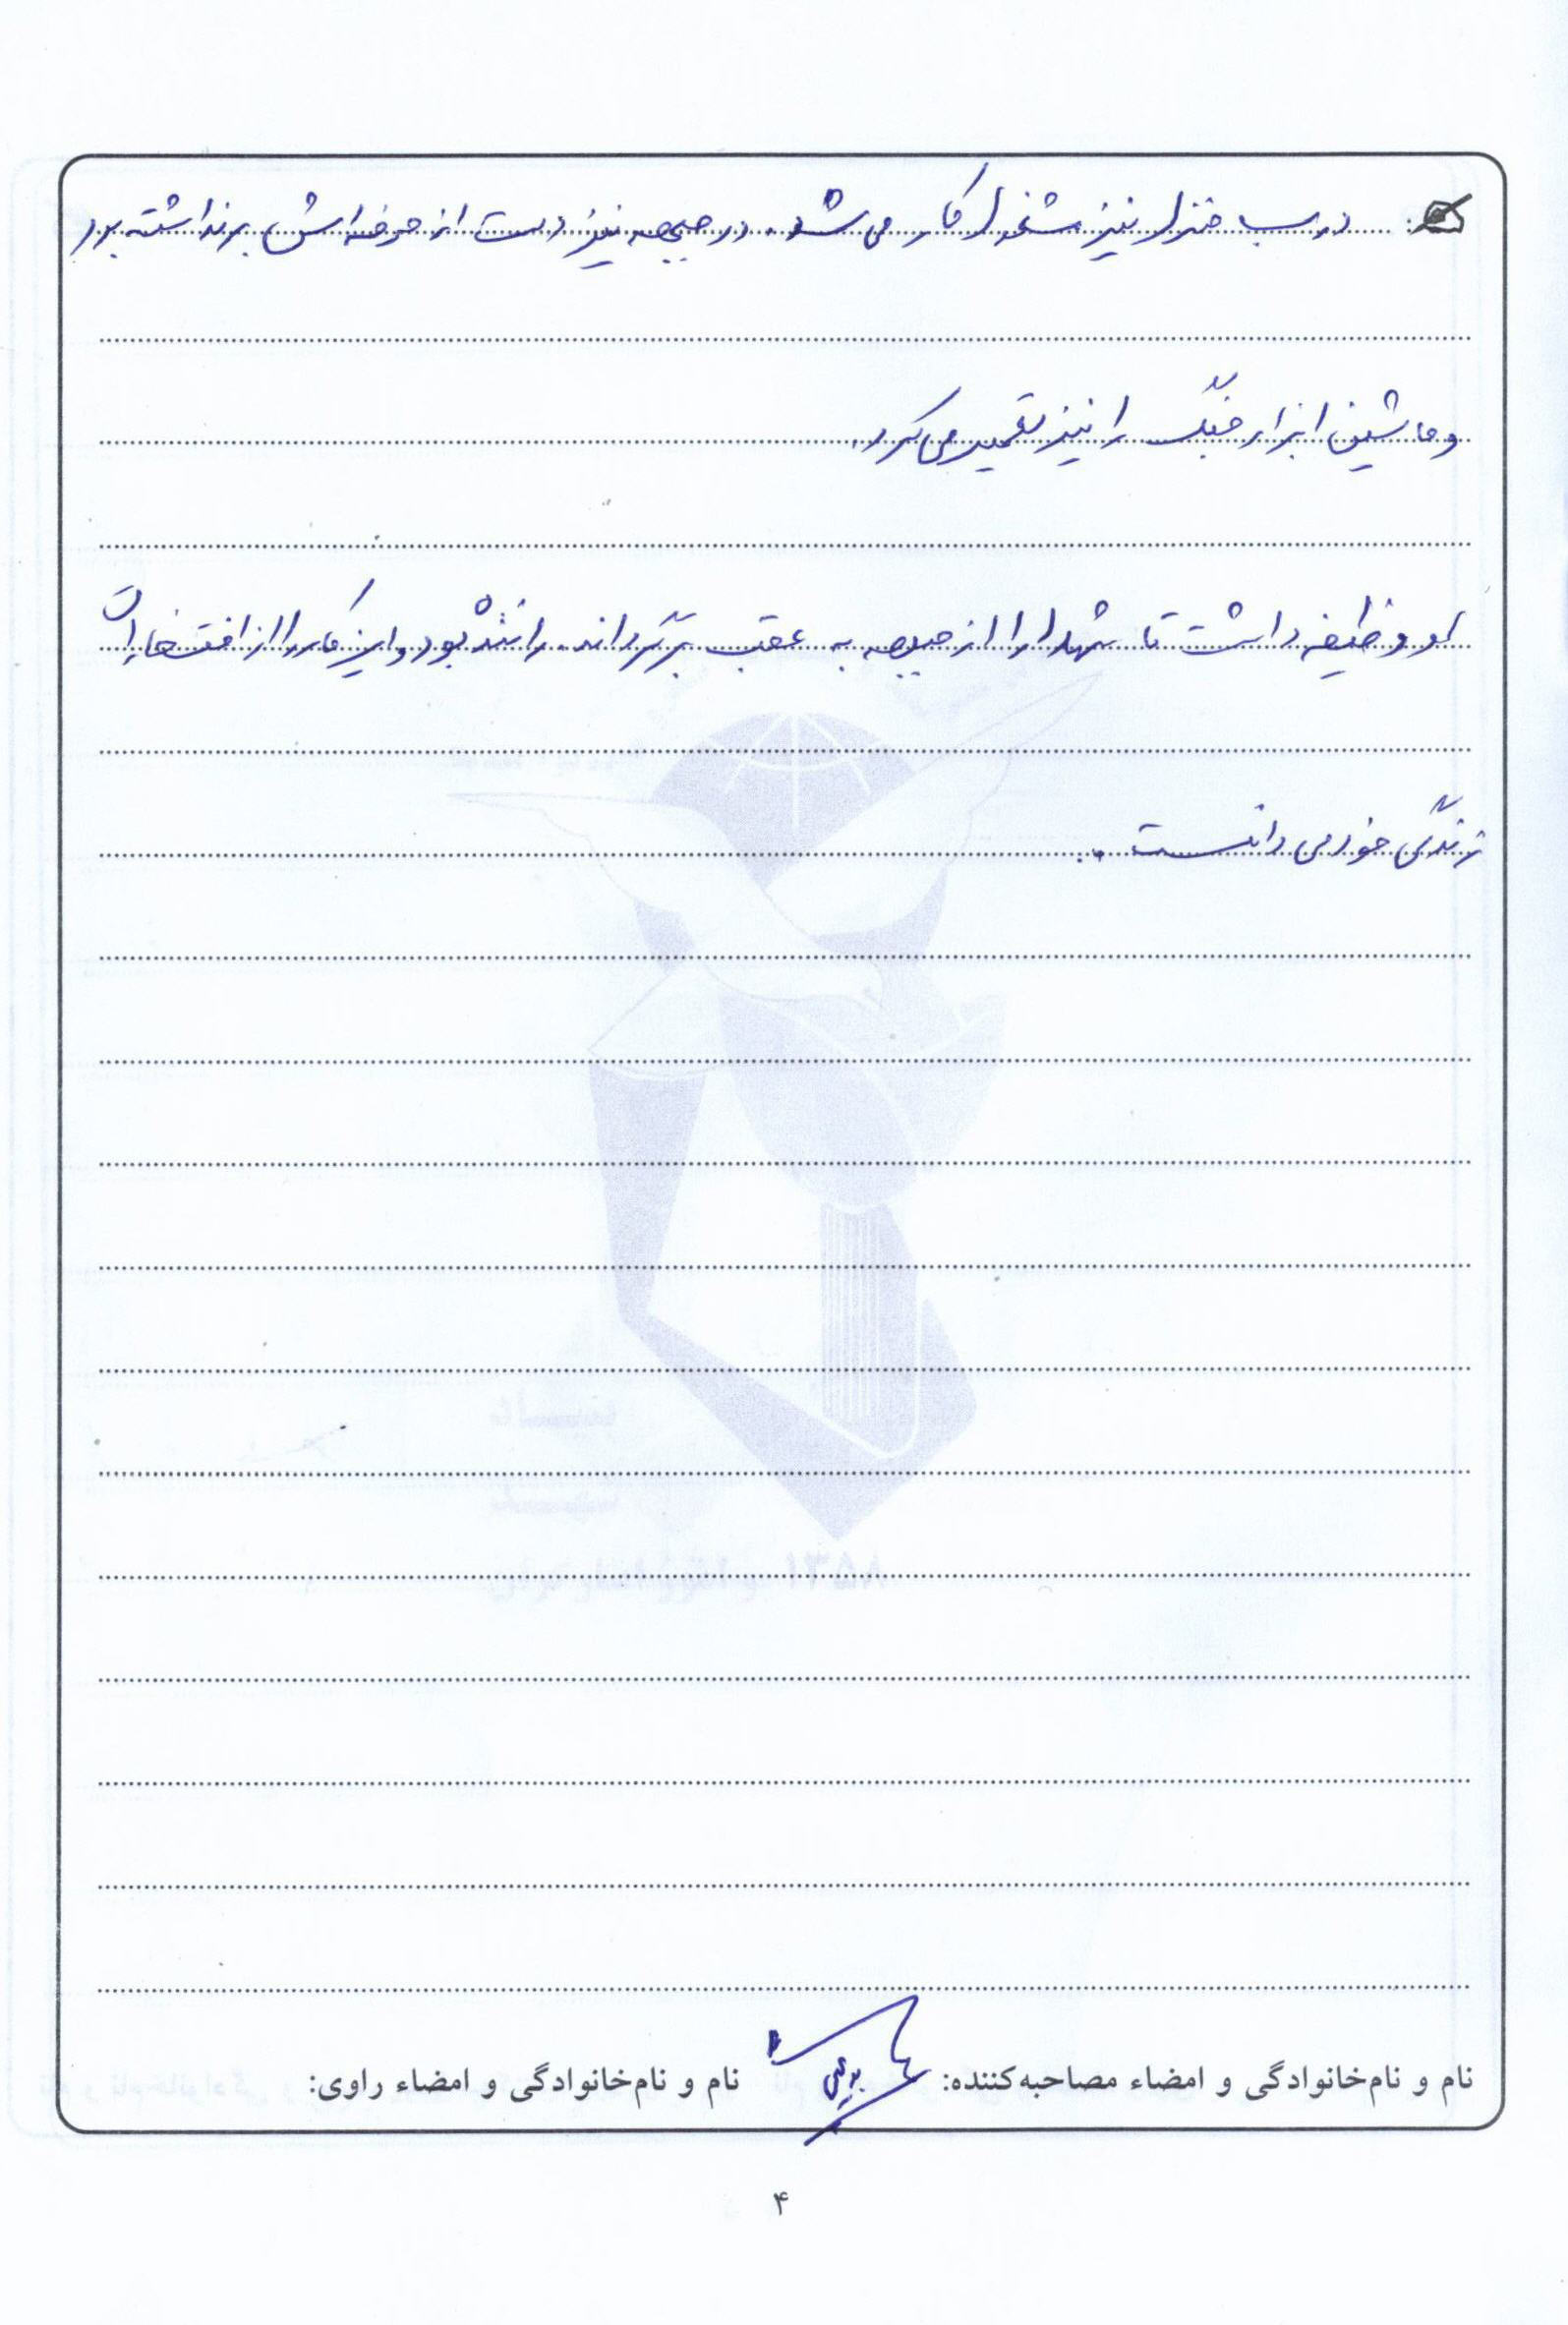 درب منزل نیز مشغول کار می شد. در جبهه نیز دست از حرفه اش برنداشته بود
و ماشین ابزار جنگ را نیز تعمیر می کرد.
او وظیفه داشت تا شهدا را از جبهه به عقب برگرداند. راننده بود و این کار را از افتخارات
زندگی خود می دانست.
نام و نام‌خانوادگی و امضاء مصاحبه‌کننده:
نام و نام‌خانوادگی و امضاء راوی:
۴